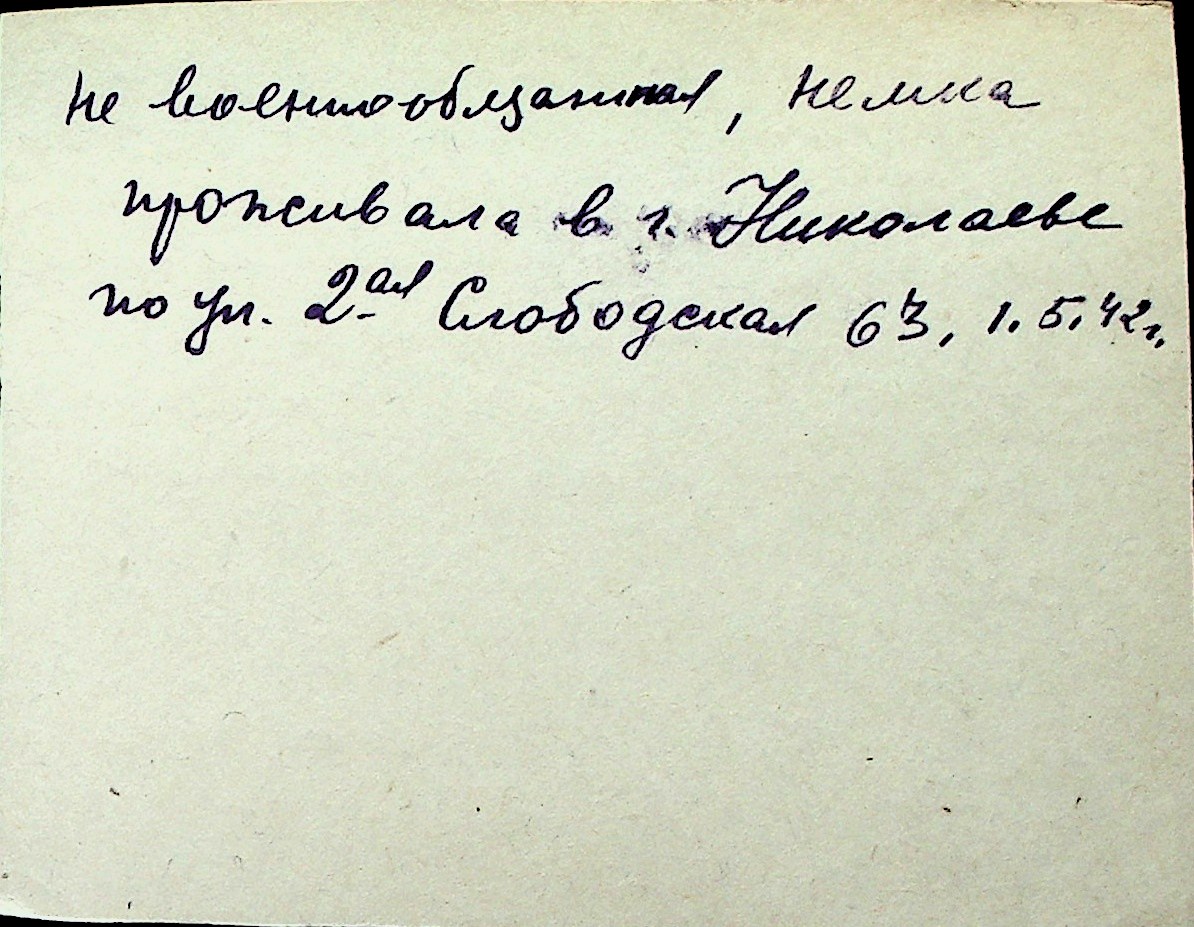 не военнообязанная, немка
проживала в г. Николаеве
по ул. 2-ая Слободская 63, 1.5.42г.